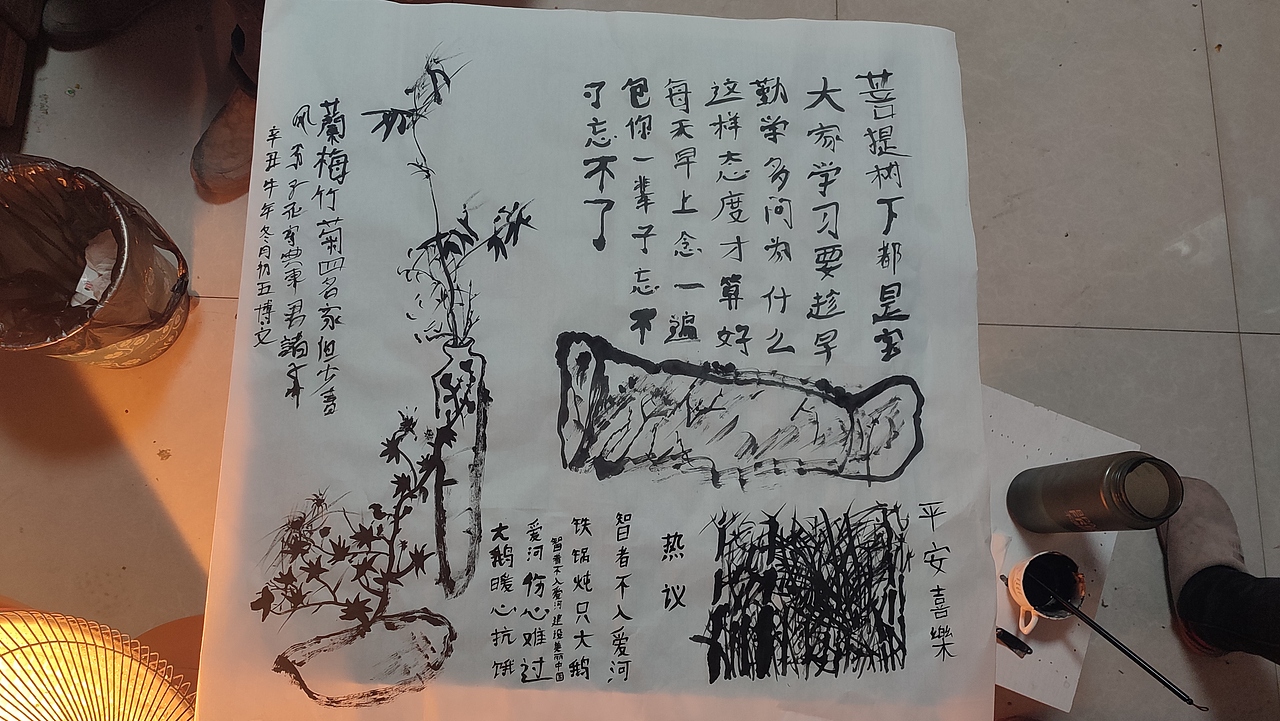 菩提树下都是宝
大家学习要趁早
勤学多问为什么
这样态度才算好
每天早上念一遍
包你一辈子忘不
可忘不了
平安喜樂
热议
智者不入爱河
铁锅炖只大鹅
智者不入爱河建设美丽中国
爱河伤心难过
大鹅暖心抗饿
蘭梅竹菊四名家但少春
风
辛丑牛年冬月初五博文